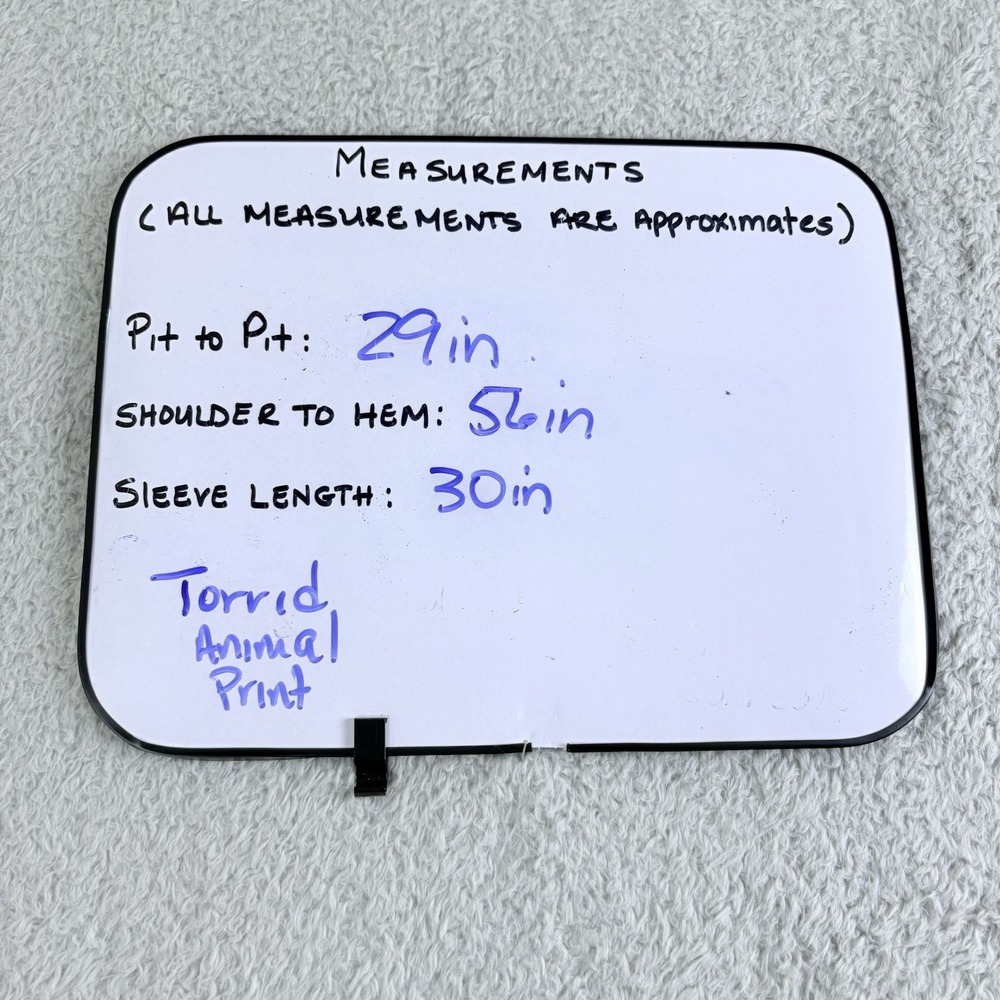 MEASUREMENTS
(ALL MEASUREMENTS ARE Approximates)
Pit to Pit: 29in
SHOULDER TO HEM: 56in
SLEEVE LENGTH: 30in
Torrid
Animal
Print